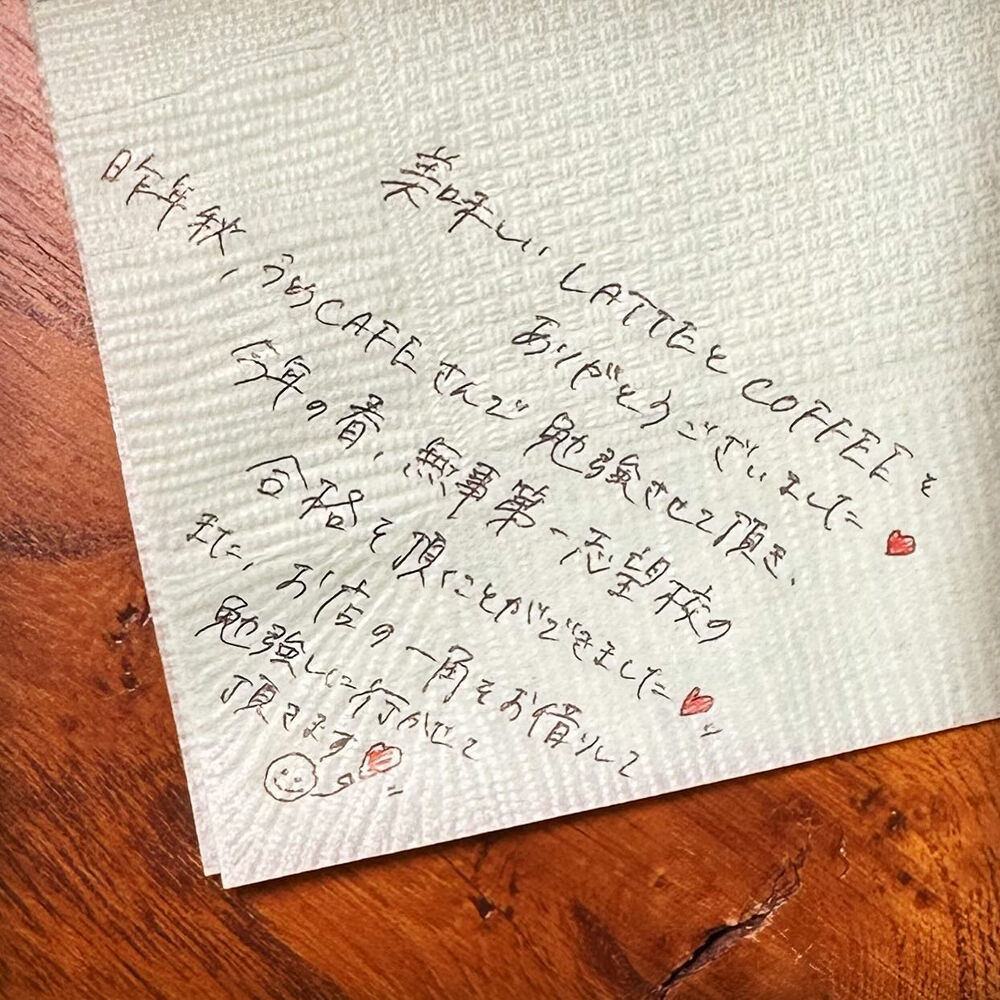 美味しいLATTEとCOFFEEを
ありがとうございました
昨年秋、うめCAFEさんで勉強させて頂き、
今年の春、無事第一志望校の
合格を頂くことができました
また、お店の一角をお借りして
勉強しに行かせて
頂きます